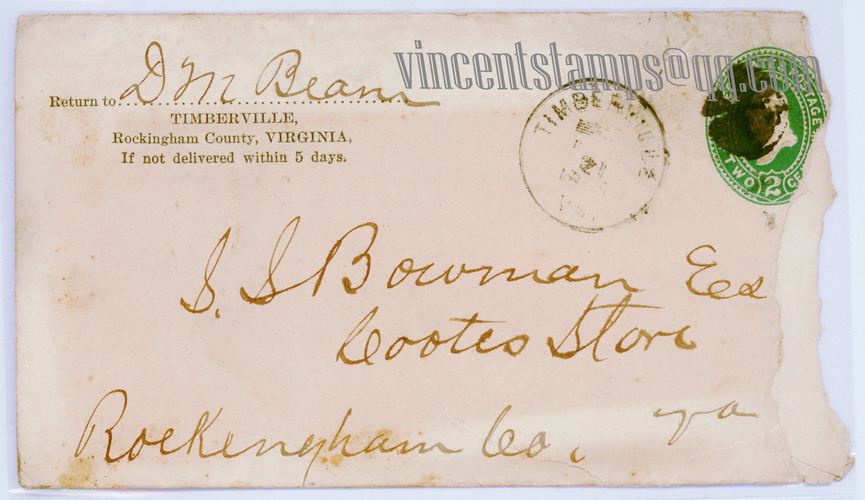 vincentstamps@qq.com
Return to D M Beam
TIMBERVILLE,
Rockingham County, VIRGINIA,
If not delivered within 5 days.
TIMBERVILLE
TWO 2 CE
AGE
S. S Bowman
Cootes Store
Rockengham Co, Va